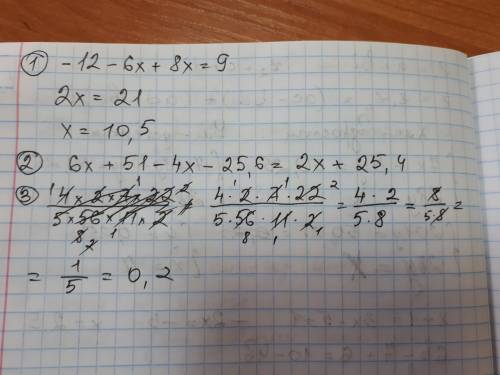 ① -12 - 6x + 8x = 9
2x = 21
x = 10,5
② 6x + 51 - 4x - 25,6 = 2x + 25,4
③ (4 · 2 · 7 · 22)/(5 · 56 · 11 · 2) = (4 · 2)/(5 · 8) = 8/(5·8) =
= 1/5 = 0,2